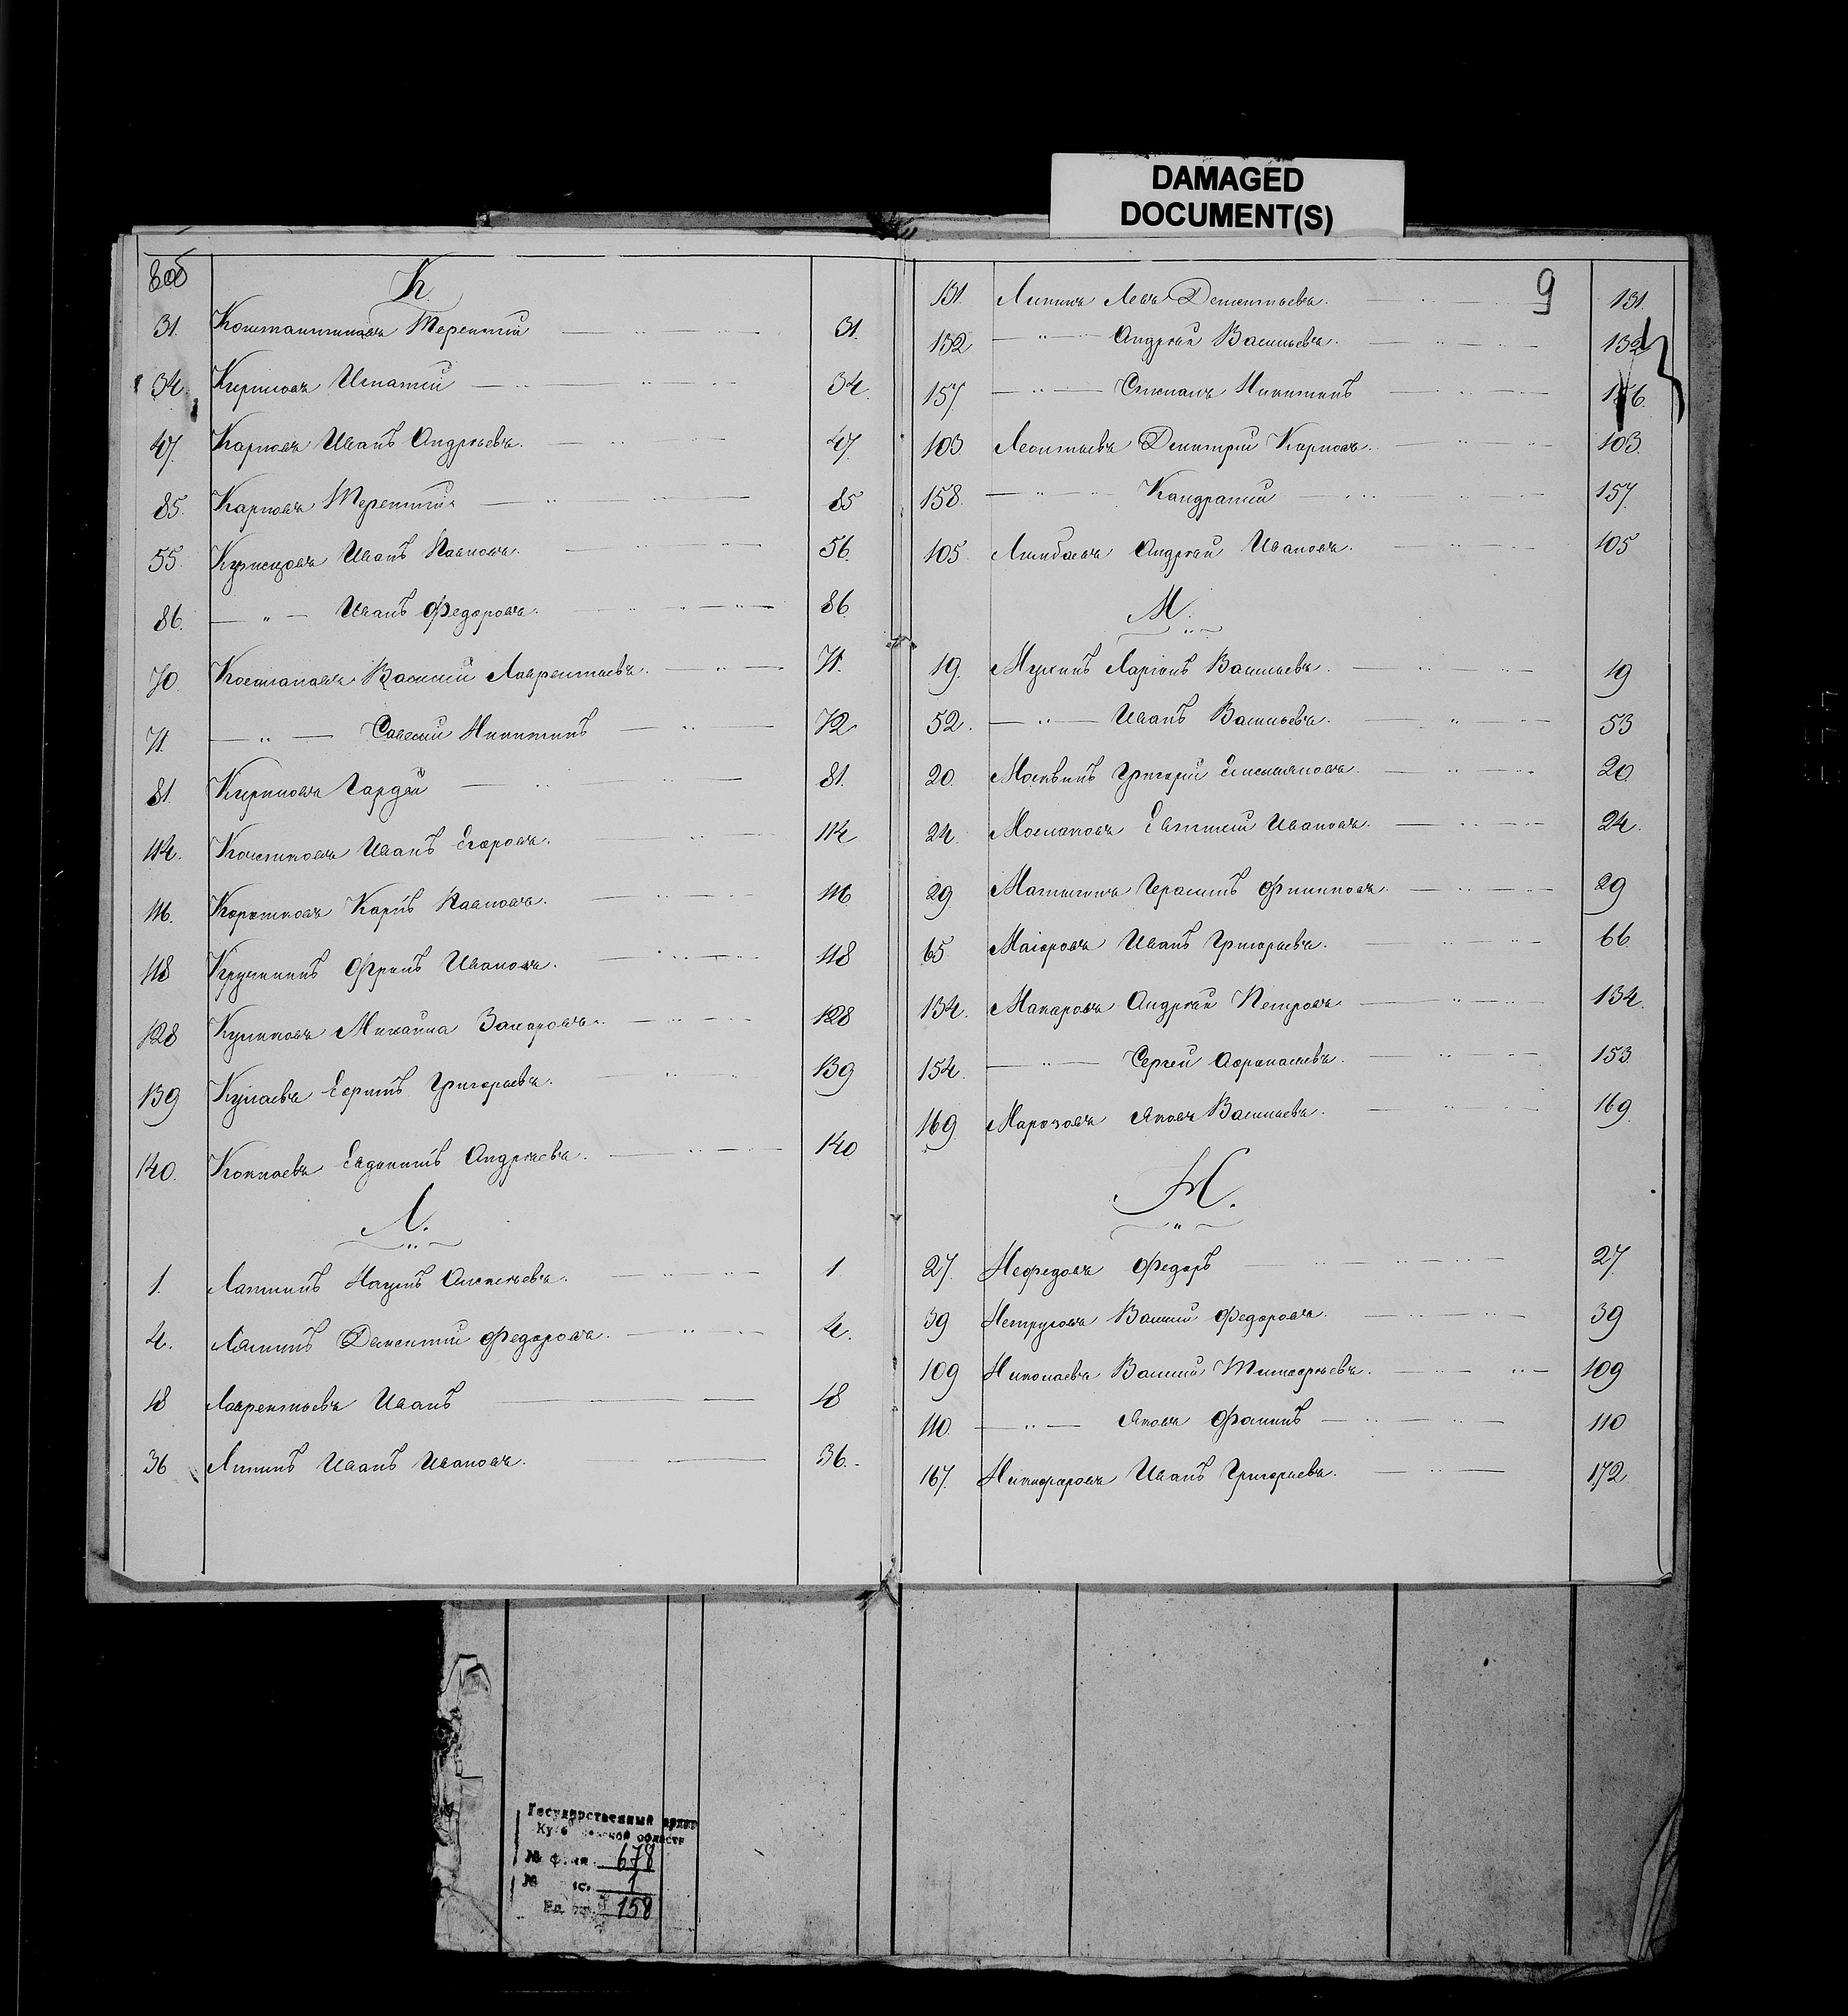 DAMAGED
DOCUMENT(S)
8об
К.
31. Константиновъ Терентий 31.
34. Кириловъ Игнатий 34.
47. Карповъ Иванъ Андреевъ. 47.
85. Карповъ Терентий 85
55. Кузнецовъ Иванъ Павловъ. 56.
86. — „ — Иванъ Федоровъ. 86
70 Космановъ Василий Лаврентьевъ. 71.
71. — „ — Савелий Никитинъ 72
81. Кириловъ Гордей 81.
114. Костиковъ Иванъ Егоровъ. 114
116. Коротковъ Карпъ Павловъ. 116
118 Кручининъ Фролъ Ивановъ. 118
128 Куликовъ Михайла Захаровъ. 128
139 Кулаевъ Ефимъ Григорьевъ. 139
140. Коннаевъ Евдокимъ Андреевъ. 140
Л.
1. Лаптинъ Наумъ Алексеевъ. 1
4. Ляминъ Дементий Федоровъ. 4.
18 Лаврентьевъ Иванъ 18
36 Липинъ Иванъ Ивановъ. 36.
9
131. Липинъ Левъ Дементьевъ. 131
132 — „ — Андрей Васильевъ. 132
157. — „ — Степанъ Никитинъ 156.
103. Леонтьевъ Дмитрий Карповъ. 103.
158. — „ — Кондратий 157
105. Андрей Ивановъ. 105
М.
19. Мухинъ Ларионъ Васильевъ. 19
52. — „ — Иванъ Васильевъ. 53
20. Москвинъ Григорий Емельяновъ. 20.
24. Евтихий Ивановъ. 24.
29 Матюгинъ Герасимъ Филиповъ. 29
65 Маіоровъ Иванъ Григорьевъ. 66.
134. Макаровъ Андрей Петровъ 134.
154. — „ — Сергей Афанасьевъ. 153
169 Марозовъ Яковъ Васильевъ. 169
Н.
27. Нефедовъ Федоръ 27.
39 Василий Федоровъ. 39
109 Николаевъ Василий Тимофеевъ. 109
110. — „ — Яковъ Фоминъ 110
167. Никифоровъ Иванъ Григорьевъ. 172
Государственный архив
Куйбышевской области
№ фонда 678
№ 1
158